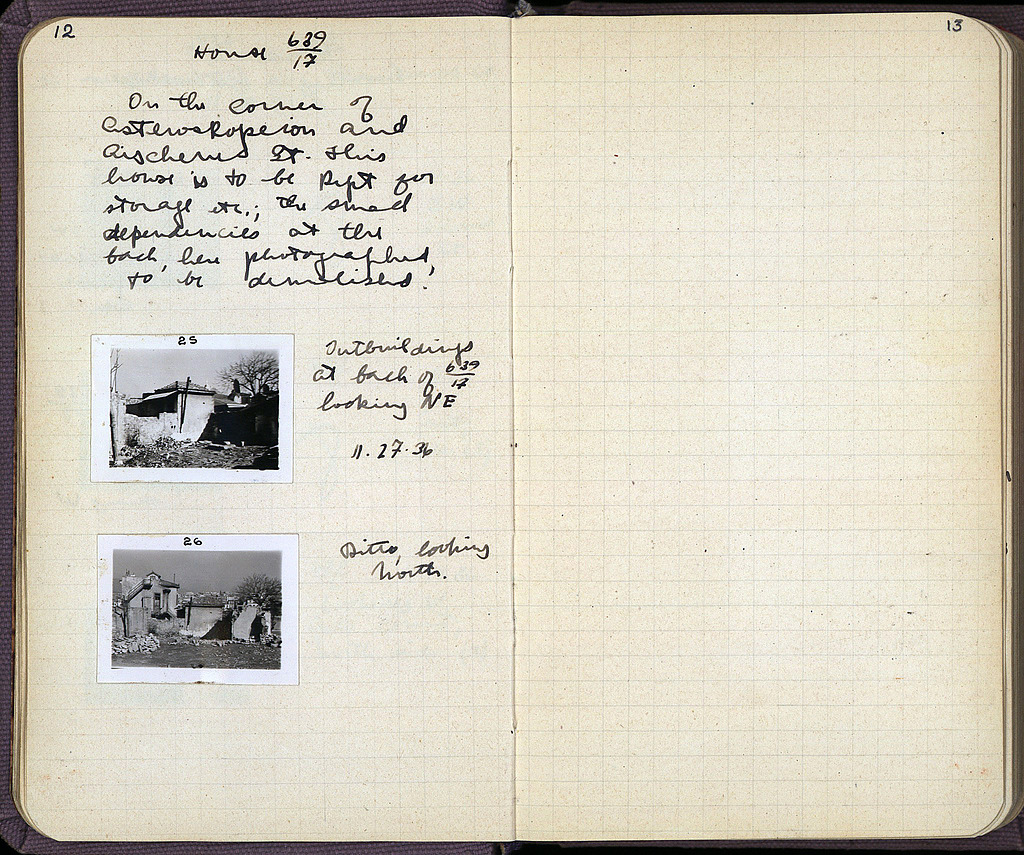 12
House 639/17
On the corner of
Asteroskopeion and
Aischenes St. This
house is to be kept for
storage etc.; the small
dependencies at the
back, here photographed,
to be demolished.
25
Outbuildings
at back of 639/17
looking NE
11.27.36
26
Ditto, looking
North.
13